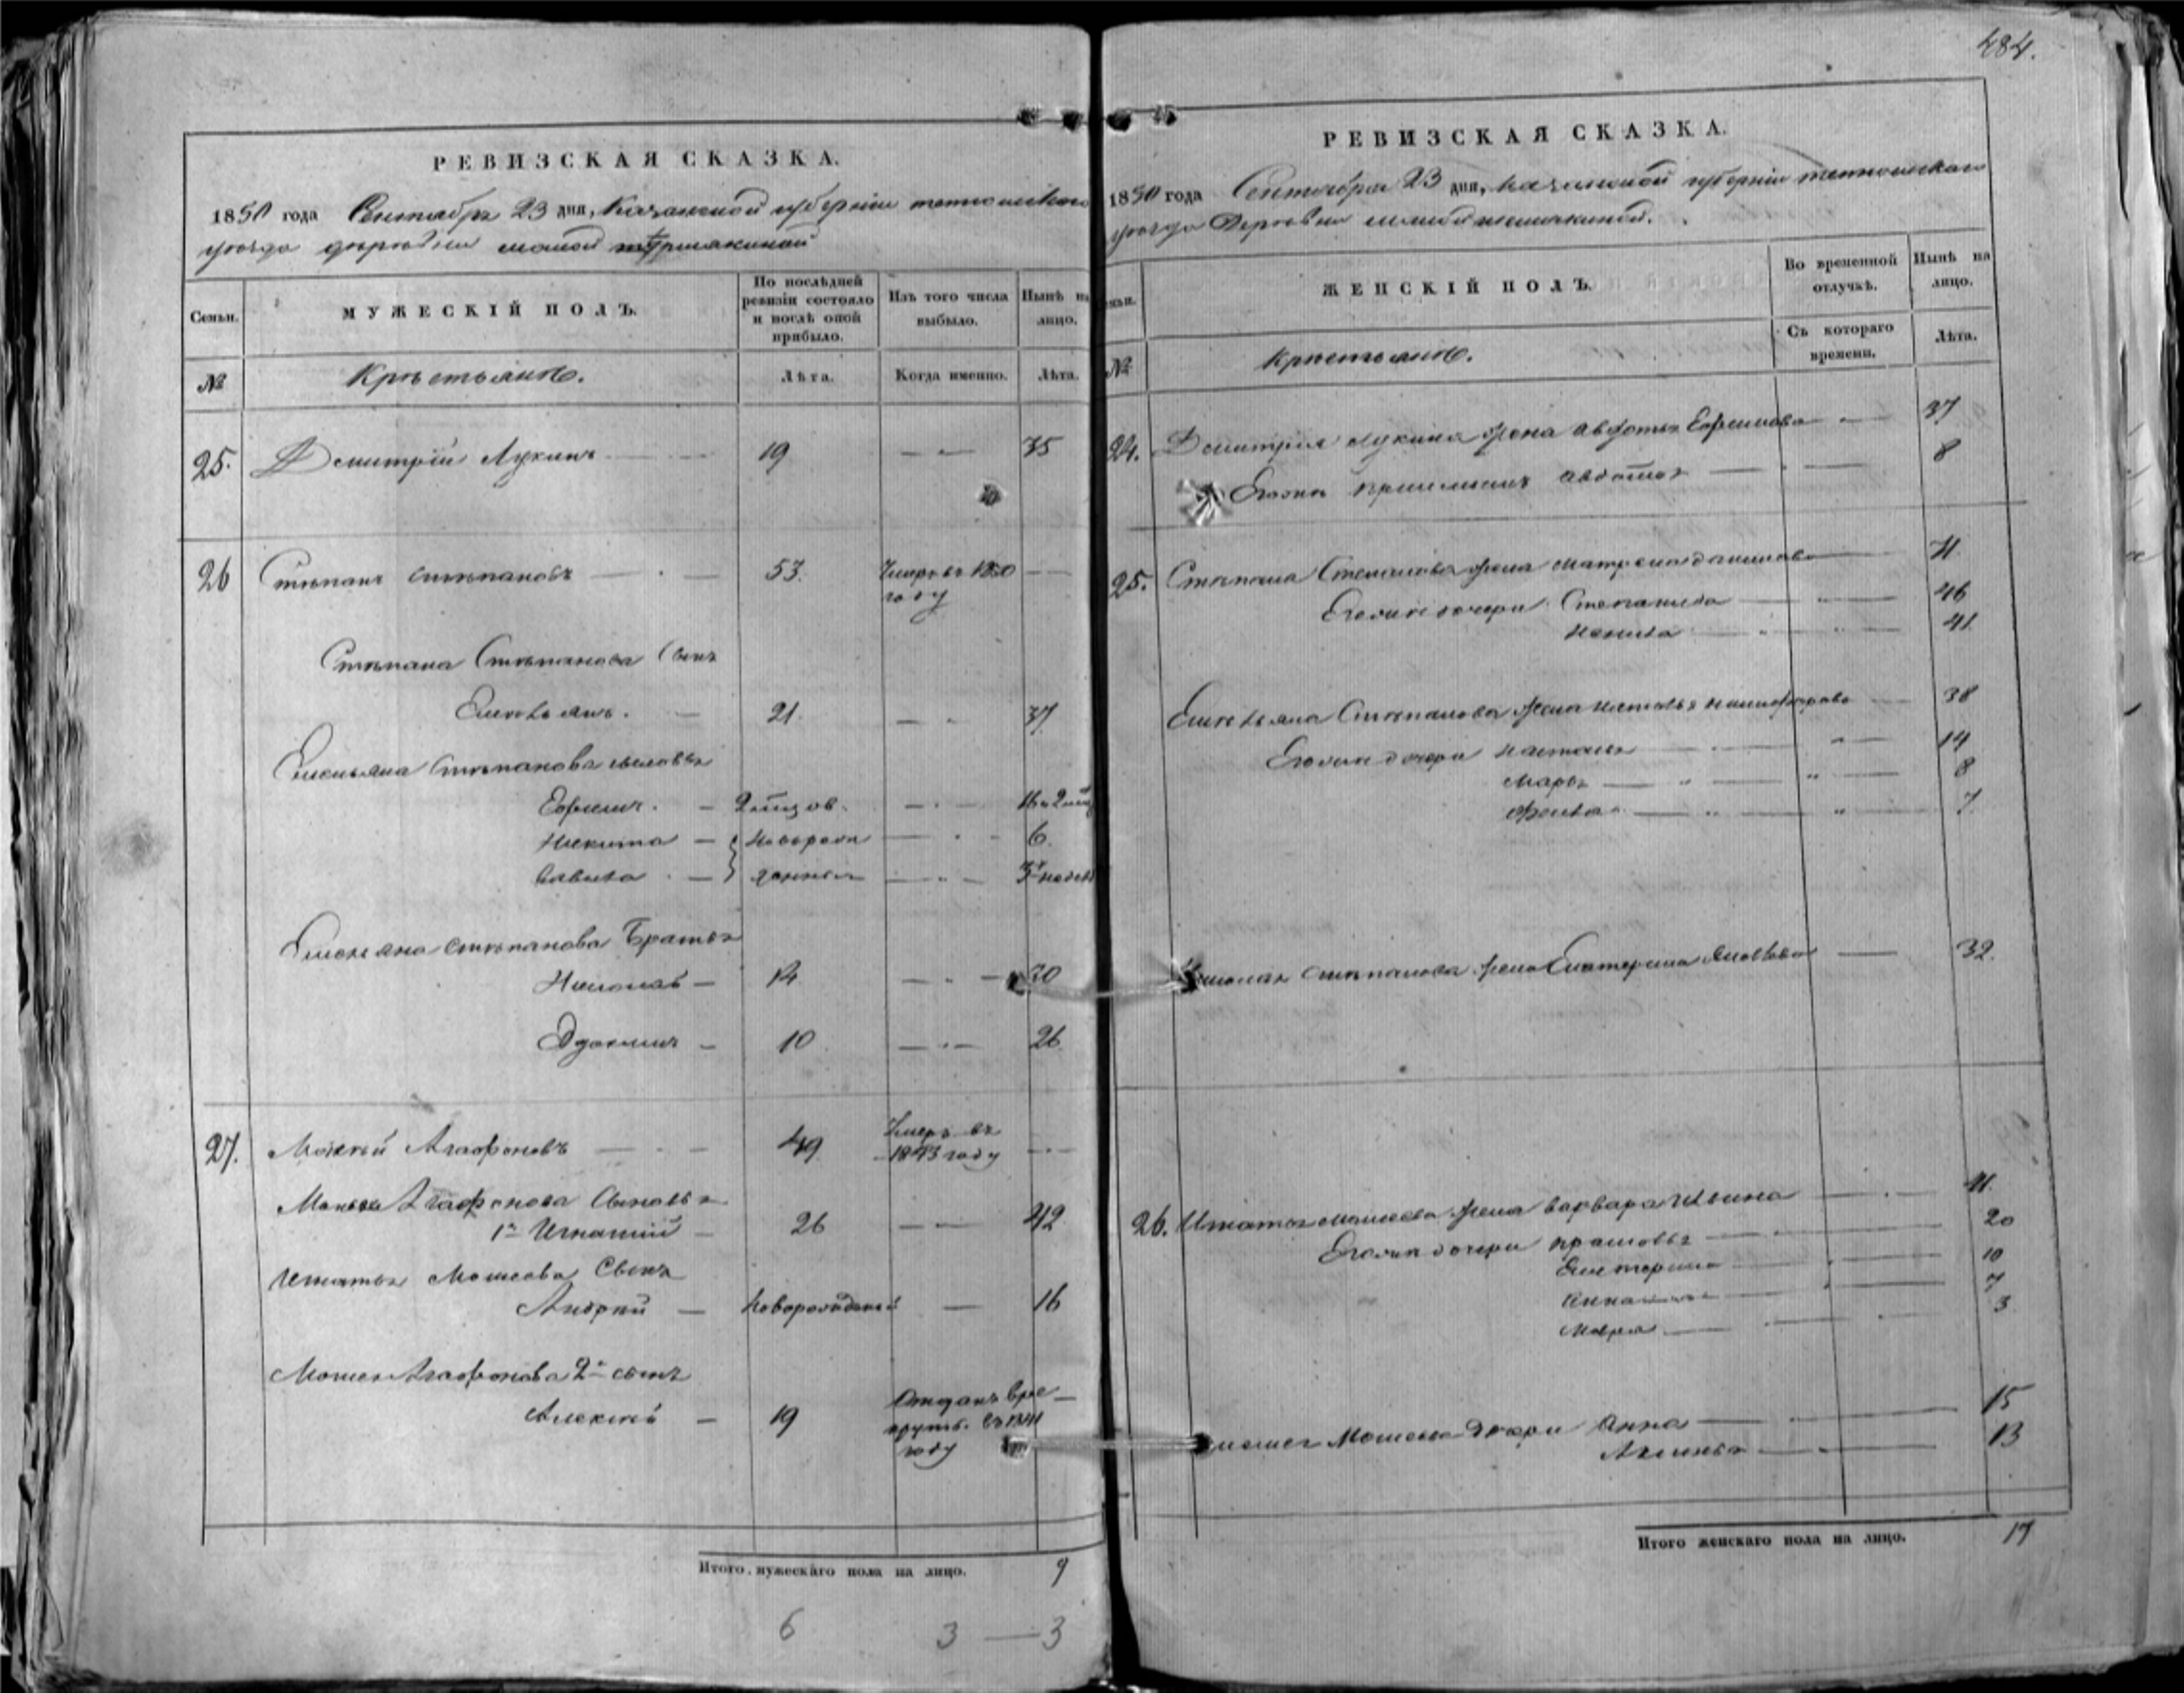 РЕВИЗСКАЯ СКАЗКА.
1850 года Сентября 23 дня, Казанской губернии тетюшскаго
уезда деревни малой
Семьи.
МУЖЕСКІЙ ПОЛЪ.
По послѣдней ревизіи состояло и послѣ оной прибыло.
Изъ того числа выбыло.
Нынѣ на лицо.
№
Крестьяне.
Лѣта.
Когда именно.
Лѣта.
25. Дмитрій Лукинъ 19 35
26 Степанъ Степановъ 53. Умеръ въ 1850
году
Степана Степанова Сынъ
Емельянъ. 21. 37.
Емельяна Степанова сыновья
Ефимъ.
Никита новорож 6.
Савела денныя недель
Емельяна степанова Братья
Николай 14 30
Эдокимъ 10 26.
27. Моисей Агафоновъ 49 Умеръ въ
1843 году
Моисея Агафонова Сыновья
1й Игнатий 26 42
Игнатья Моисеева Сынъ
Андрей новорожденый 16
Моисея Агафонова 2й сынъ
Алексей 19 Отданъ в ре
круты. въ 1841
году
Итого мужескаго пола на лицо. 9
6 3 — 3
484.
РЕВИЗСКАЯ СКАЗКА.
1850 года Сентября 23 дня, казанской губернии тетюшскаго
уезда Деревни малой
ЖЕНСКІЙ ПОЛЪ.
Во временной отлучкѣ.
Нынѣ на лицо.
№
Крестьяне.
Съ котораго времени.
Лѣта.
24. Дмитрия лукина жена авдотья Ефимова 37
Евонъ приемышъ 8
25. Степана Степанова жена матрена данилова 71
Еговыи дочери Степанида 46
41
Емельяна Степанова жена наталья никифорова 38
Еговыи дочери наталья 14
Марья 8
7.
Николая степанова жена Екатерина Яковлева 32.
26. Игнатья моисеева жена варвара Ильина 41.
Еговыи дочери прасковья 20
Екатерина 10
7
Мавра 3
Моисеева дочери Анна 15
Аксинья 13
Итого женскаго пола на лицо. 17